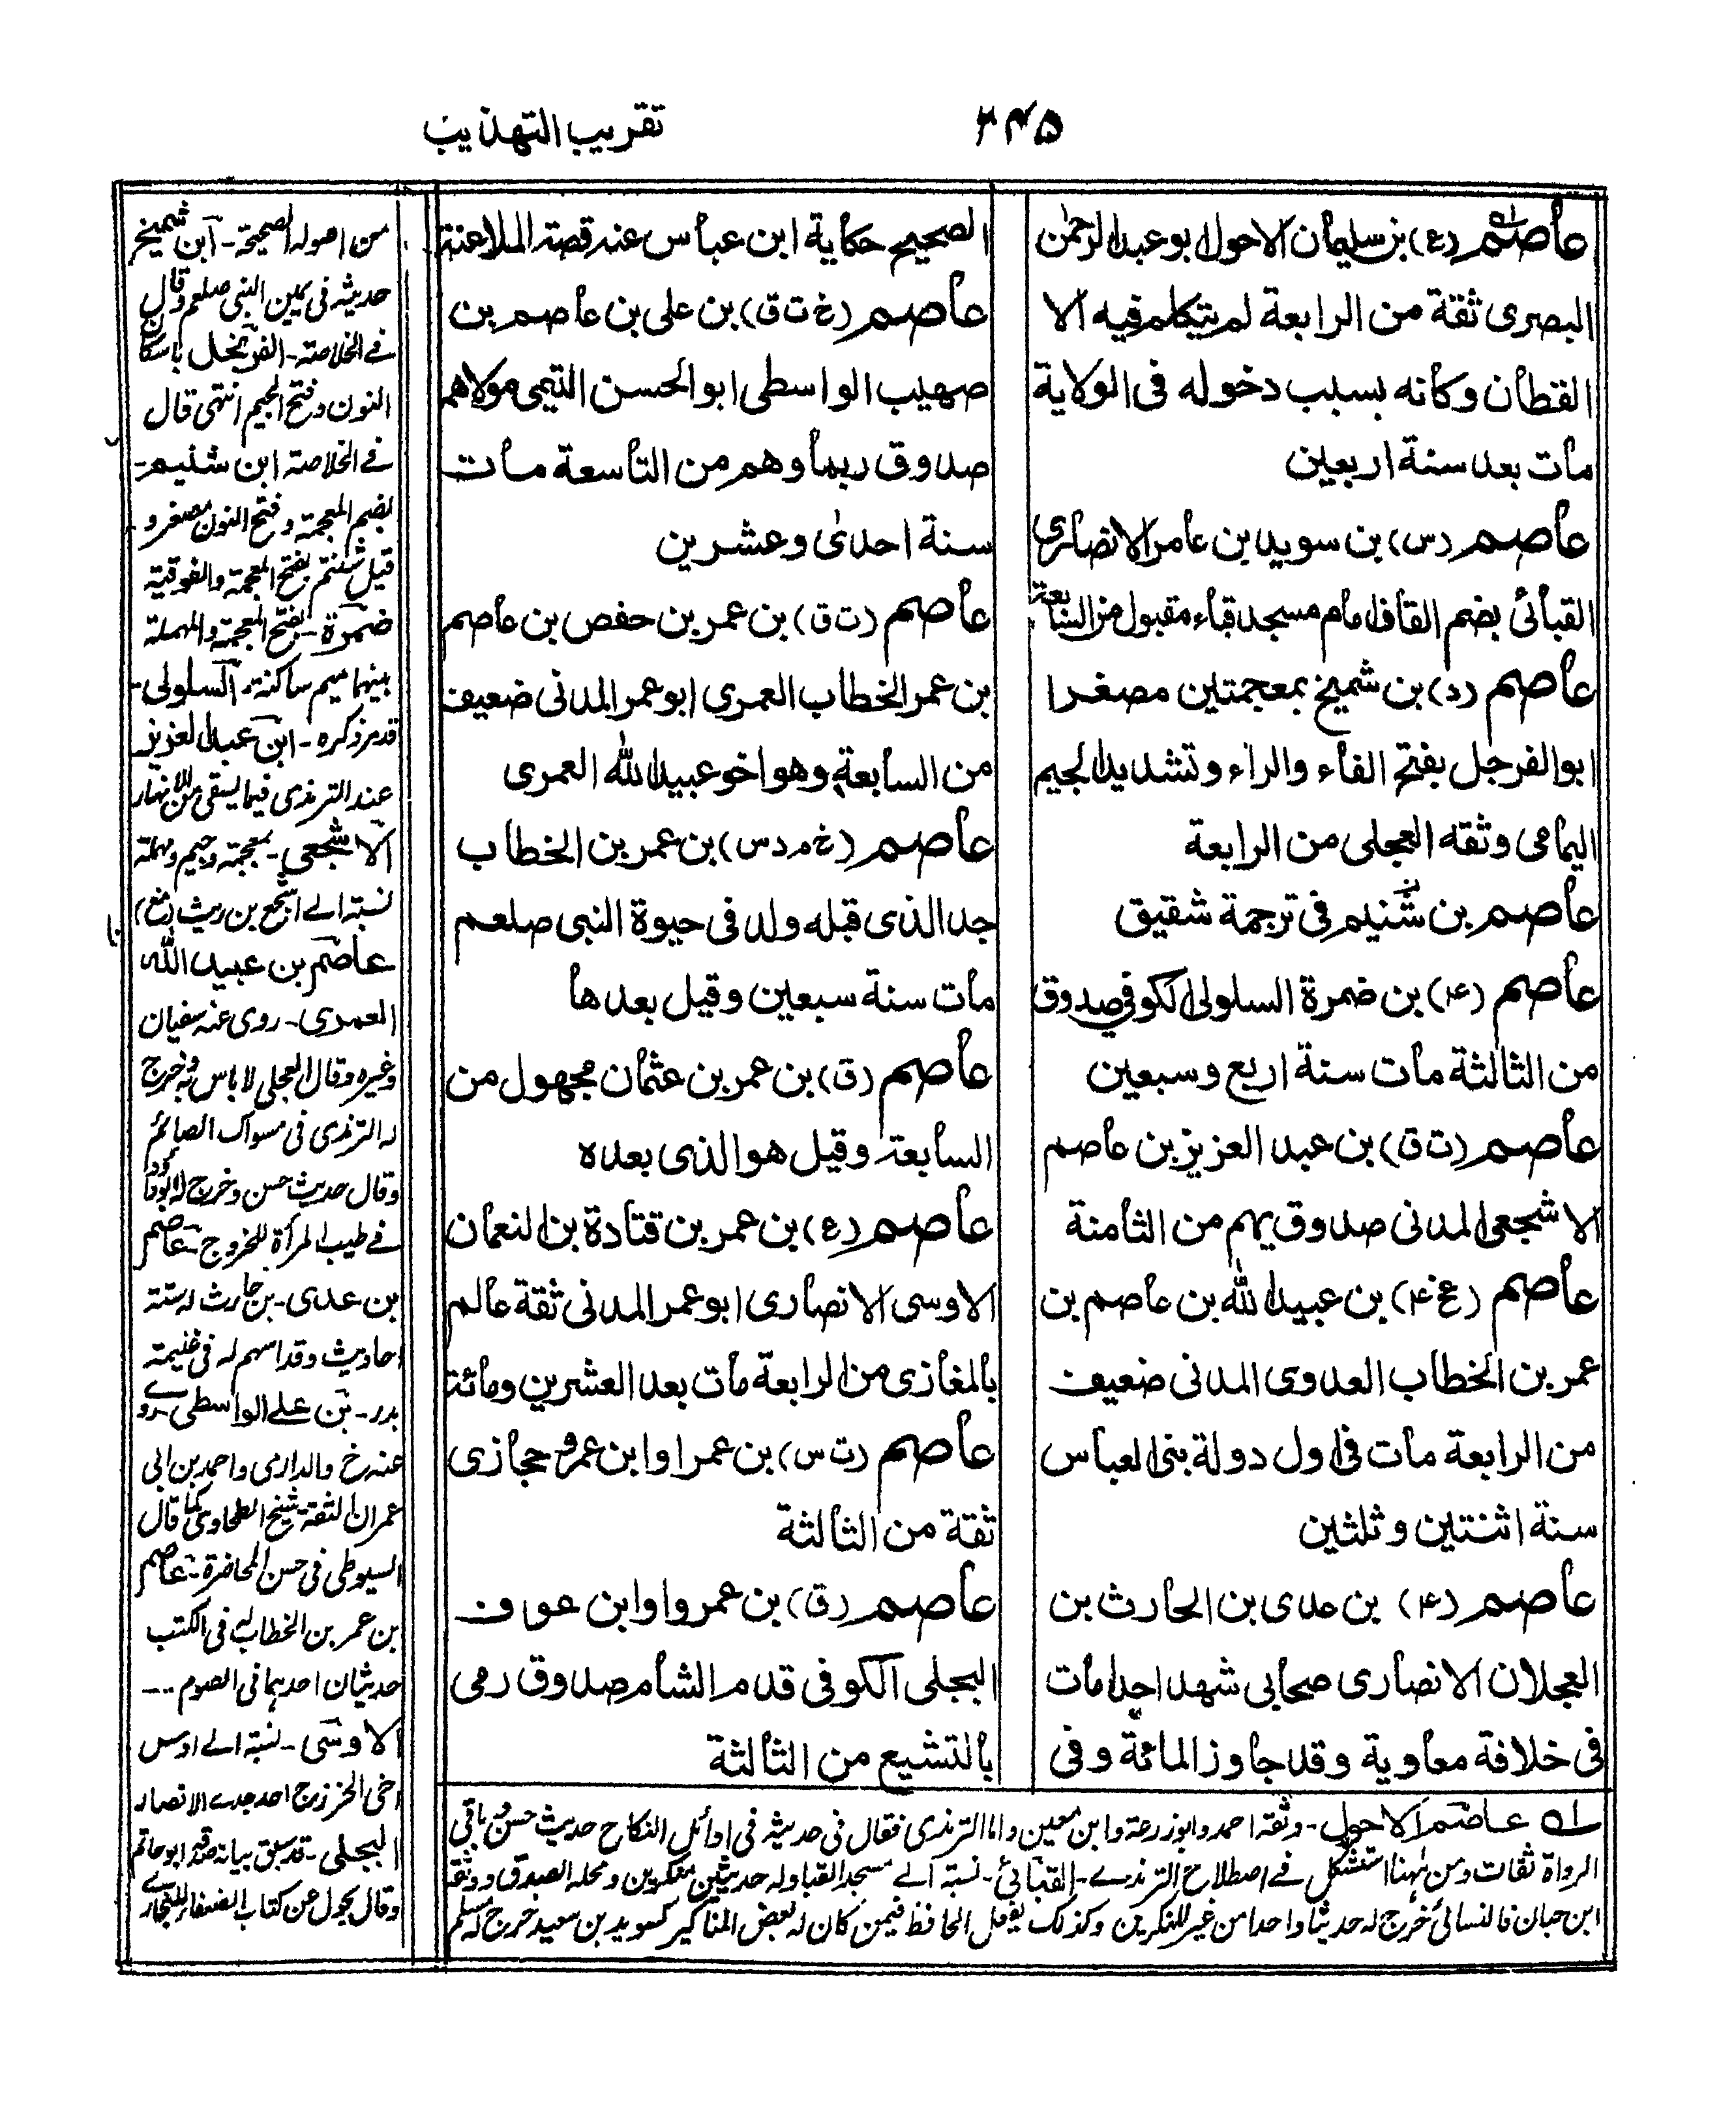 ۲۴۵
تقریب التهذیب
عاصم (ع) بن سلیمان الاحول ابو عبد الرحمٰن
البصری ثقة من الرابعة لم یتکلم فیه الا
القطان وکانه بسبب دخوله فی الولایة
مات بعد سنة اربعین
عاصم (س) بن سوید بن عامر الانصاری
القبائی بضم القاف امام مسجد قباء مقبول من السابعة
عاصم (د) بن شمیخ بمعجمتین مصغرا
ابو الفرجل بفتح الفاء والراء وتشدید الجیم
الیمامی وثقه العجلی من الرابعة
عاصم بن شنیم فی ترجمة شقیق
عاصم (۴) بن ضمرة السلولی الکوفی صدوق
من الثالثة مات سنة اربع وسبعین
عاصم (ت ق) بن عبد العزیز بن عاصم
الاشجعی المدنی صدوق یهم من الثامنة
عاصم (عخ ۴) بن عبید الله بن عاصم بن
عمر بن الخطاب العدوی المدنی ضعیف
من الرابعة مات فی اول دولة بنی العباس
سنة اثنتین وثلثین
عاصم (۴) بن عدی بن الحارث بن
العجلان الانصاری صحابی شهد احدا مات
فی خلافة معاویة وقد جاوز المائة وفی
الصحیح حکایة ابن عباس عنه قصة الملاعنة
عاصم (خ ت ق) بن علی بن عاصم بن
صهیب الواسطی ابو الحسن التیمی مولاهم
صدوق ربما وهم من التاسعة مات
سنة احدیٰ وعشرین
عاصم (ت ق) بن عمر بن حفص بن عاصم
بن عمر الخطاب العمری ابو عمر المدنی ضعیف
من السابعة وهو اخو عبید الله العمری
عاصم (خ م د س) بن عمر بن الخطاب
جد الذی قبله ولد فی حیوة النبی صلعم
مات سنة سبعین وقیل بعدها
عاصم (ق) بن عمر بن عثمان مجهول من
السابعة وقیل هو الذی بعده
عاصم (ع) بن عمر بن قتادة بن النعمان
الاوسی الانصاری ابو عمر المدنی ثقة عالم
بالمغازی من الرابعة مات بعد العشرین ومائة
عاصم (ت س) بن عمر او ابن عمرو حجازی
ثقة من الثالثة
عاصم (ق) بن عمرو او ابن عوف
البجلی الکوفی قدم الشام صدوق رمی
بالتشیع من الثالثة
من اصوله الصحیحة - ابن شمیخ
حدیثه فی یمین النبی صلعم وقال
فے الخلاصة - الفرنجل باسکان
النون وفتح الجیم انتهی قال
فے الخلاصة ابن شنیم -
بضم المعجمة وفتح النون مصغر و
قیل شنتم بفتح المعجمة والفوقیة
ضمرة - بفتح المعجمة والمهملة
بینهما میم ساکنة - السلولی -
قد مر ذکره - ابن عبد العزیز
عند الترمذی فیما یسقی من الانهار
الاشجعی - بمعجمة وجیم ومهملة
نسبة الے اشجع بن ریث (مغ)
عاصم بن عبید الله
العمری - روی عنه سفیان
وغیره وقال العجلی لا باس به وخرج
له الترمذی فی سواک الصائم
وقال حدیث حسن وخرج له ابو داؤد
فے طیب المرأة للخروج - عاصم
بن عدی - بن حارث له ستة
احادیث وقد اسهم له فی غنیمة
بدر - بن علے الواسطی - روے
عنه خ والدارمی واحمد بن ابی
عمران الثقة شیخ الطحاوی کما قال
السیوطی فی حسن المحاضرة - عاصم
بن عمر بن الخطاب له فی الکتب
حدیثان احدهما فی الصوم ..-
الاوسی - نسبة الے اوس
اخی الخزرج احد جدے الانصار
البجلی - قد سبق بیانه صدقه ابو حاتم
وقال یحول عن کتاب الضعفاء للبخارے
له عاصم الاحول - وثقه احمد وابو زرعة وابن معین واما الترمذی فقال فی حدیثه فی اوائل النکاح حدیث حسن وباقی
الرواة ثقات ومن ههنا استشکل فے اصطلاح الترمذے - القبائی - نسبة الے مسجد القبا وله حدیثین منکرین ومحله الصدق ووثقه
ابن حبان فالنسائی خرج له حدیثا واحدا من غیر المنکرین وکذلک یفعل الحافظ فیمن کان له بعض المناکیر کسوید بن سعید خرج له مسلم